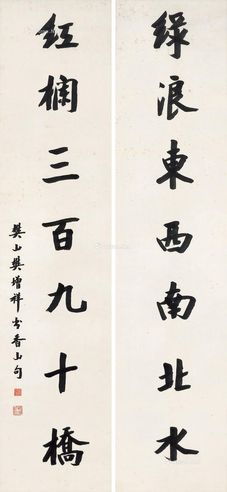 綠浪東西南北水
紅欄三百九十橋
樊山樊增祥書香山句